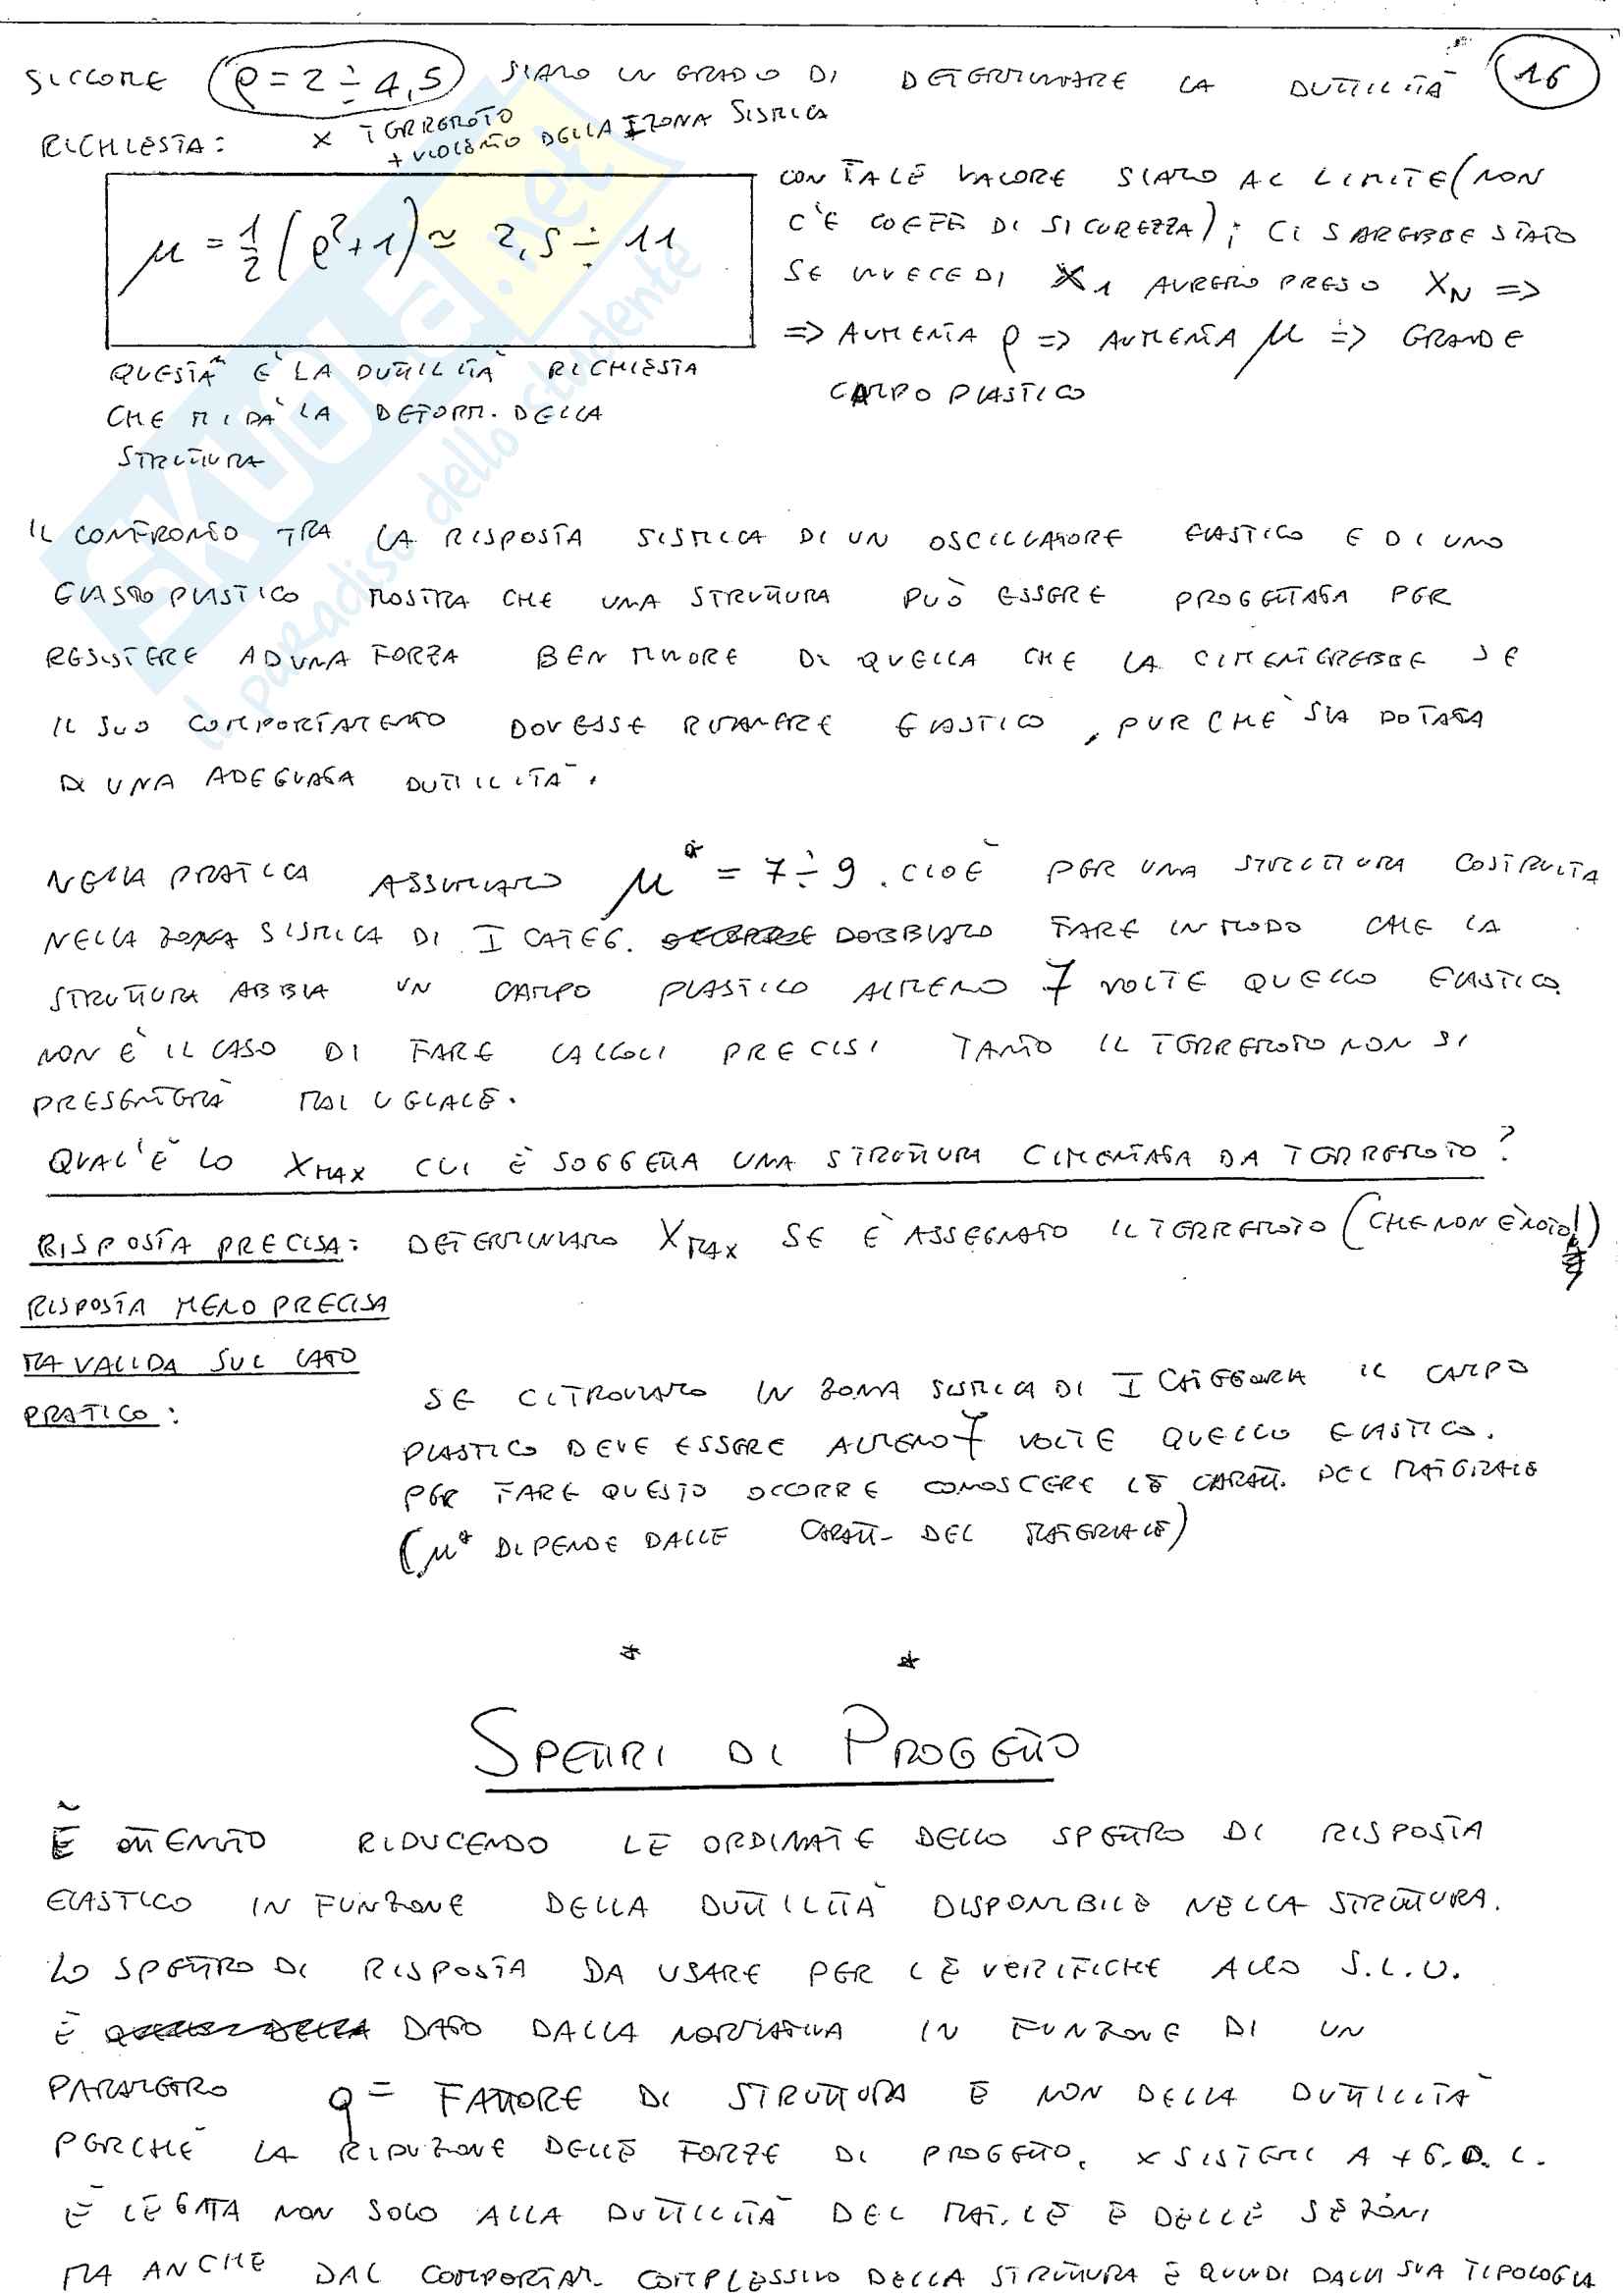 SICCOME ρ = 2 ÷ 4,5 SIAMO IN GRADO DI DETERMINARE LA DUTTILITÀ
16
RICHIESTA: X TERREMOTO
+ VIOLENTO DELLA ZONA SISMICA
μ = 1/2 (ρ² + 1) ≃ 2,5 ÷ 11
QUESTA È LA DUTTILITÀ RICHIESTA
CHE MI DÀ LA DEFORM. DELLA
STRUTTURA
CON TALE VALORE SIAMO AL LIMITE (NON
C'È COEFF DI SICUREZZA); CI SAREBBE STATO
SE INVECE DI X1 AVREMO PRESO XN =>
=> AUMENTA ρ => AUMENTA μ => GRANDE
CAMPO PLASTICO
IL CONFRONTO TRA LA RISPOSTA SISMICA DI UN OSCILLATORE ELASTICO E DI UNO
ELASTOPLASTICO MOSTRA CHE UNA STRUTTURA PUÒ ESSERE PROGETTATA PER
RESISTERE AD UNA FORZA BEN MINORE DI QUELLA CHE LA CIMENTEREBBE SE
IL SUO COMPORTAMENTO DOVESSE RIMANERE ELASTICO, PURCHÈ SIA DOTATA
DI UNA ADEGUATA DUTTILITÀ.
NELLA PRATICA ASSUMIAMO μ* = 7 ÷ 9. CIOÈ PER UNA STRUTTURA COSTRUITA
NELLA ZONA SISMICA DI I CATEG. DOBBIAMO FARE IN MODO CHE LA
STRUTTURA ABBIA UN CAMPO PLASTICO ALMENO 7 VOLTE QUELLO ELASTICO.
NON È IL CASO DI FARE CALCOLI PRECISI TANTO IL TERREMOTO NON SI
PRESENTERÀ MAI UGUALE.
QUAL'È LO XMAX CUI È SOGGETTA UNA STRUTTURA CIMENTATA DA TERREMOTO?
RISPOSTA PRECISA: DETERMINIAMO XMAX SE È ASSEGNATO IL TERREMOTO (CHE NON È NOTO!)
RISPOSTA MENO PRECISA
MA VALIDA SUL LATO
PRATICO:
SE CI TROVIAMO IN ZONA SISMICA DI I CATEGORIA IL CAMPO
PLASTICO DEVE ESSERE ALMENO 7 VOLTE QUELLO ELASTICO.
PER FARE QUESTO OCCORRE CONOSCERE LE CARATT. DEL MATERIALE
(μ* DIPENDE DALLE CARATT. DEL MATERIALE)
* *
SPETTRI DI PROGETTO
È OTTENUTO RIDUCENDO LE ORDINATE DELLO SPETTRO DI RISPOSTA
ELASTICO IN FUNZIONE DELLA DUTTILITÀ DISPONIBILE NELLA STRUTTURA.
LO SPETTRO DI RISPOSTA DA USARE PER LE VERIFICHE ALLO S.L.U.
È DATO DALLA NORMATIVA IN FUNZIONE DI UN
PARAMETRO q = FATTORE DI STRUTTURA E NON DELLA DUTTILITÀ
PERCHÈ LA RIDUZIONE DELLE FORZE DI PROGETTO, X SISTEMI A + G.D.L.
È LEGATA NON SOLO ALLA DUTTILITÀ DEL MAT.LE E DELLE SEZIONI
MA ANCHE DAL COMPORTAM. COMPLESSIVO DELLA STRUTTURA E QUINDI DALLA SUA TIPOLOGIA
SKUOLA.net
il paradiso dello studente